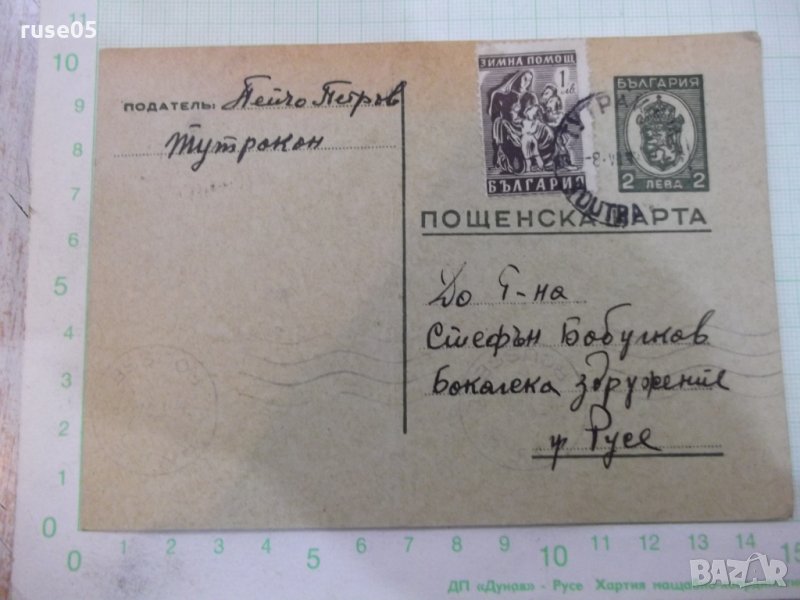 ruse05
ПОДАТЕЛЬ: Пейчо Петров
Тутракан
ЗИМНА ПОМОЩ
1 лв.
БЪЛГАРИЯ
БЪЛГАРИЯ
2 ЛЕВА 2
TOUTRA
ПОЩЕНСКА КАРТА
До Г-на
Стефън
Бакалска здружение
гр Русе
11
10
9
8
7
6
5
4
3
2
1
0
0 1 2 3 4 5 6 7 8 9 10 11 12 13 14 15
ДП «Дунав» - Русе Хартия
BAZAR